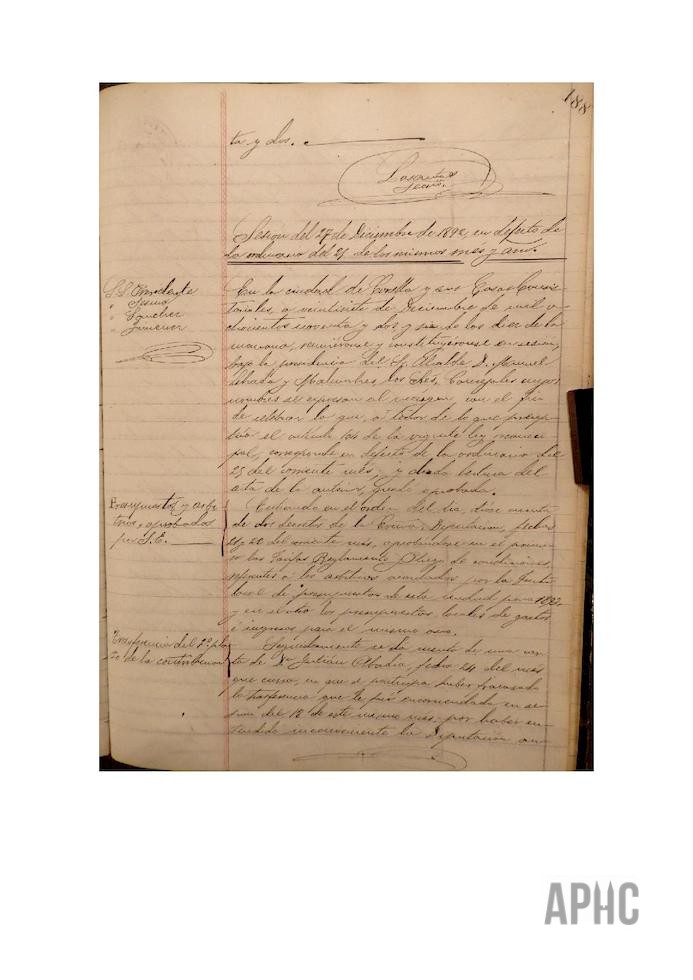 188
ta y dos.
Secrio.
Sesion del 27 de Diciembre de 1892, en defecto de
la ordinaria del 25 de los mismos mes y año.
S.S. Presidente
" Sesma
" Sanchez
" Jimenez
En la ciudad de Corella y sus Casas Consis-
toriales, a veintisiete de Diciembre de mil o-
chocientos noventa y dos y siendo las diez de la
mañana, reuniéronse y constituyéronse en sesion,
bajo la presidencia del Sr. Alcalde D. Manuel
y los Sres. Concejales cuyos
nombres se expresan al margen, con el fin
de celebrar la que, á tenor de lo que precep-
túa el artículo 104 de la vigente ley munici-
pal, corresponde en defecto de la ordinaria del
25 del corriente mes; y dada lectura del
acta de la anterior, quedó aprobada.
Presupuestos y arbi-
trios, aprobados
por S.E.
Entrando en el orden del dia, dióse cuenta
de dos decretos de la Excma. Diputacion, fechas
21 y 22 del corriente mes, aprobándose en el prime-
ro las Tarifas Reglamento y Pliego de condiciones,
referentes á los arbitrios acordados por la Junta
local de presupuestos de esta ciudad para 1893,
y en el otro los presupuestos locales de gastos
é ingresos para el mismo año.
Trasferencia del 2º pla-
zo de la contribucion
Seguidamente se da cuenta de una car-
ta de Dn Julián Abadia, fecha 24 del mes
que cursa, en que le participa haber fracasado
la trasferencia que le fué encomendada en se-
sion del 18 de este mismo mes, por haber en-
tendido inconveniente la Diputación au-
APHC